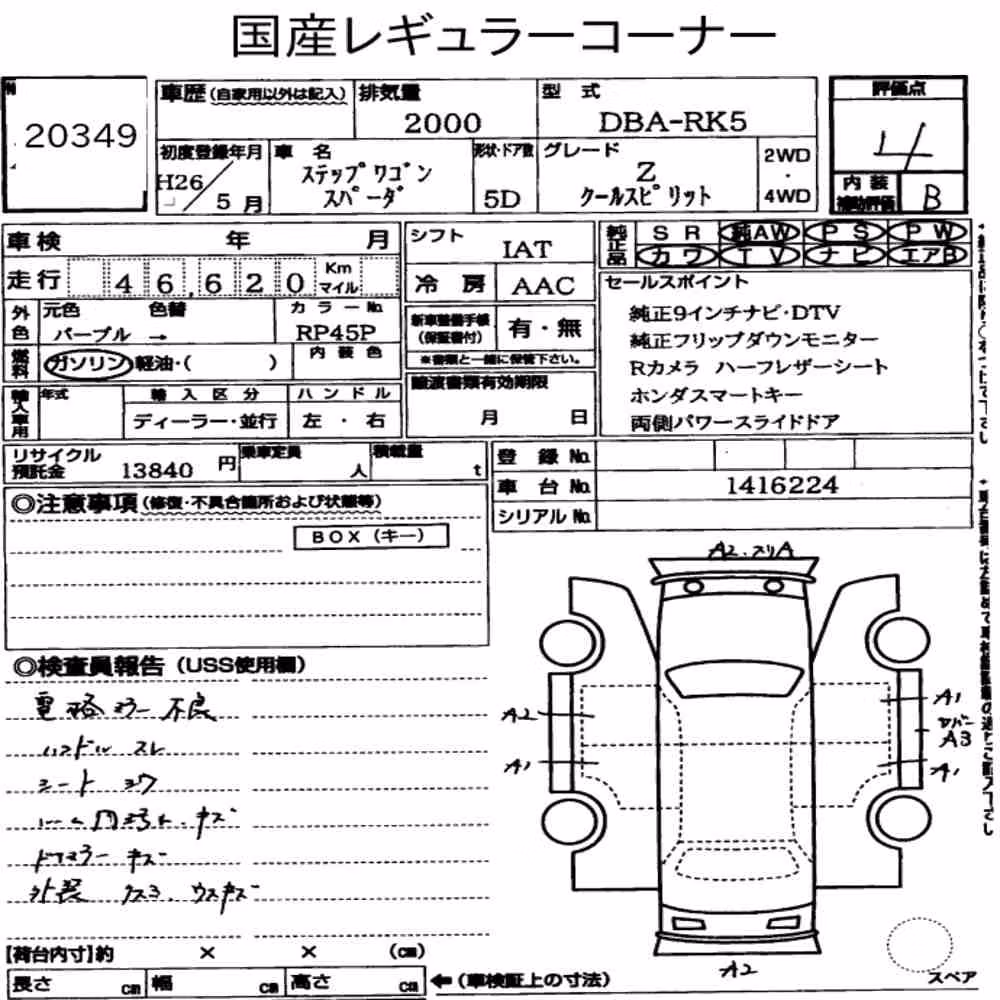 国産レギュラーコーナー
20349
車歴(自家用以外は記入)
排気量
2000
型 式
DBA-RK5
評価点
4
内装
補助評価
B
初度登録年月
H26/5月
車 名
ステップワゴン
スパーダ
形状・ドア数
5D
グレード
Z
クールスピリット
2WD
・
4WD
車検 年 月
走行 46,620 Km
マイル
シフト IAT
冷 房 AAC
純正品 SR 純AW PS PW
カワ TV ナビ エアB
外色 元色 色替
パープル →
カラーNo
RP45P
新車整備手帳
(保証書付)
有・無
※書類と一緒に保管下さい。
セールスポイント
純正9インチナビ・DTV
純正フリップダウンモニター
Rカメラ ハーフレザーシート
ホンダスマートキー
両側パワースライドドア
燃料 ガソリン 軽油・( )
内装色
輸入車用 年式
輸入区分
ディーラー・並行
ハンドル
左・右
譲渡書類有効期限
月 日
リサイクル
預託金 13840 円
乗車定員 人
積載量 t
登録No
車台No 1416224
シリアルNo
◎注意事項(修復・不具合箇所および状態等)
BOX(キー)
◎検査員報告(USS使用欄)
電格ミラー不良
ハンドル スレ
シート コワ
ドアミラー キズ
A2
A1
A1
カバー
A3
A1
A2
スペア
[荷台内寸]約 × × (cm)
長さ cm 幅 cm 高さ cm
←(車検証上の寸法)